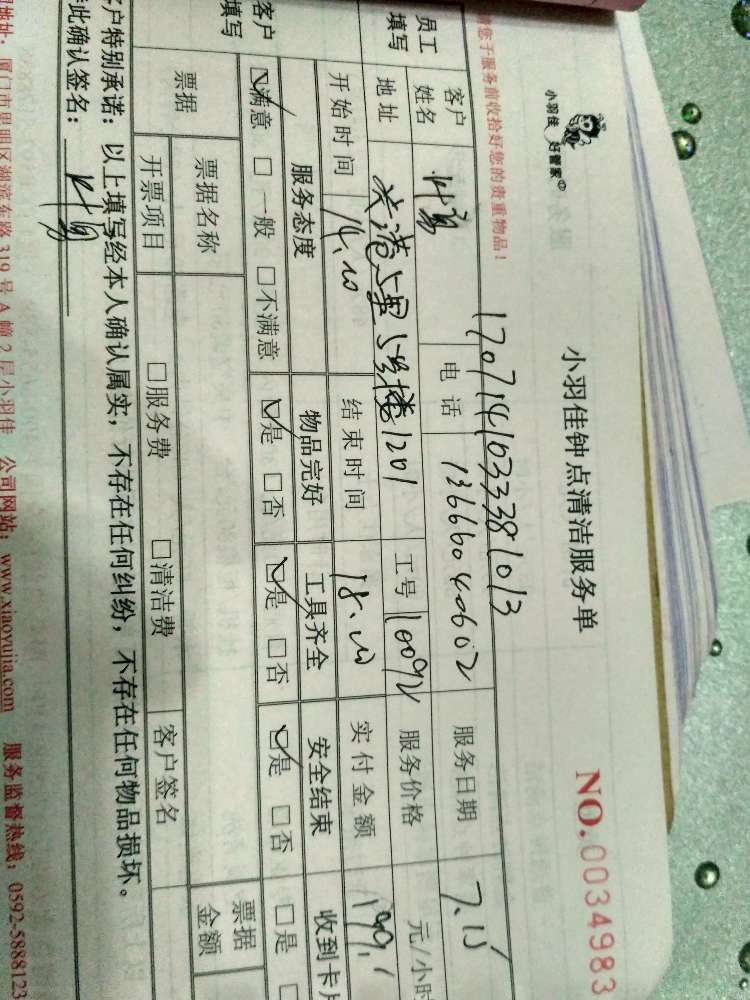 小羽佳 好管家
小羽佳钟点清洁服务单
NO.0034983
请您于服务前收拾好您的贵重物品！
1707141033381013
员工填写
客户姓名 叶
电话 13666040602
服务日期 7.15
地址 5里5号楼1201
工号 10092
服务价格 元/小时
开始时间 14.00
结束时间 18.00
实付金额
客户填写
服务态度
物品完好
工具齐全
安全结束
收到卡片
☑满意 □一般 □不满意
☑是 □否
☑是 □否
☑是 □否
□是 □
票据
票据名称
票据金额
开票项目
□服务费 □清洁费
客户签名
客户特别承诺：以上填写经本人确认属实，不存在任何纠纷，不存在任何物品损坏。
此确认签名：叶
地址：厦门市思明区湖滨东路319号A幢2层小羽佳 公司网站：www.xiaoyujia.com 服务监督热线：0592-5888123